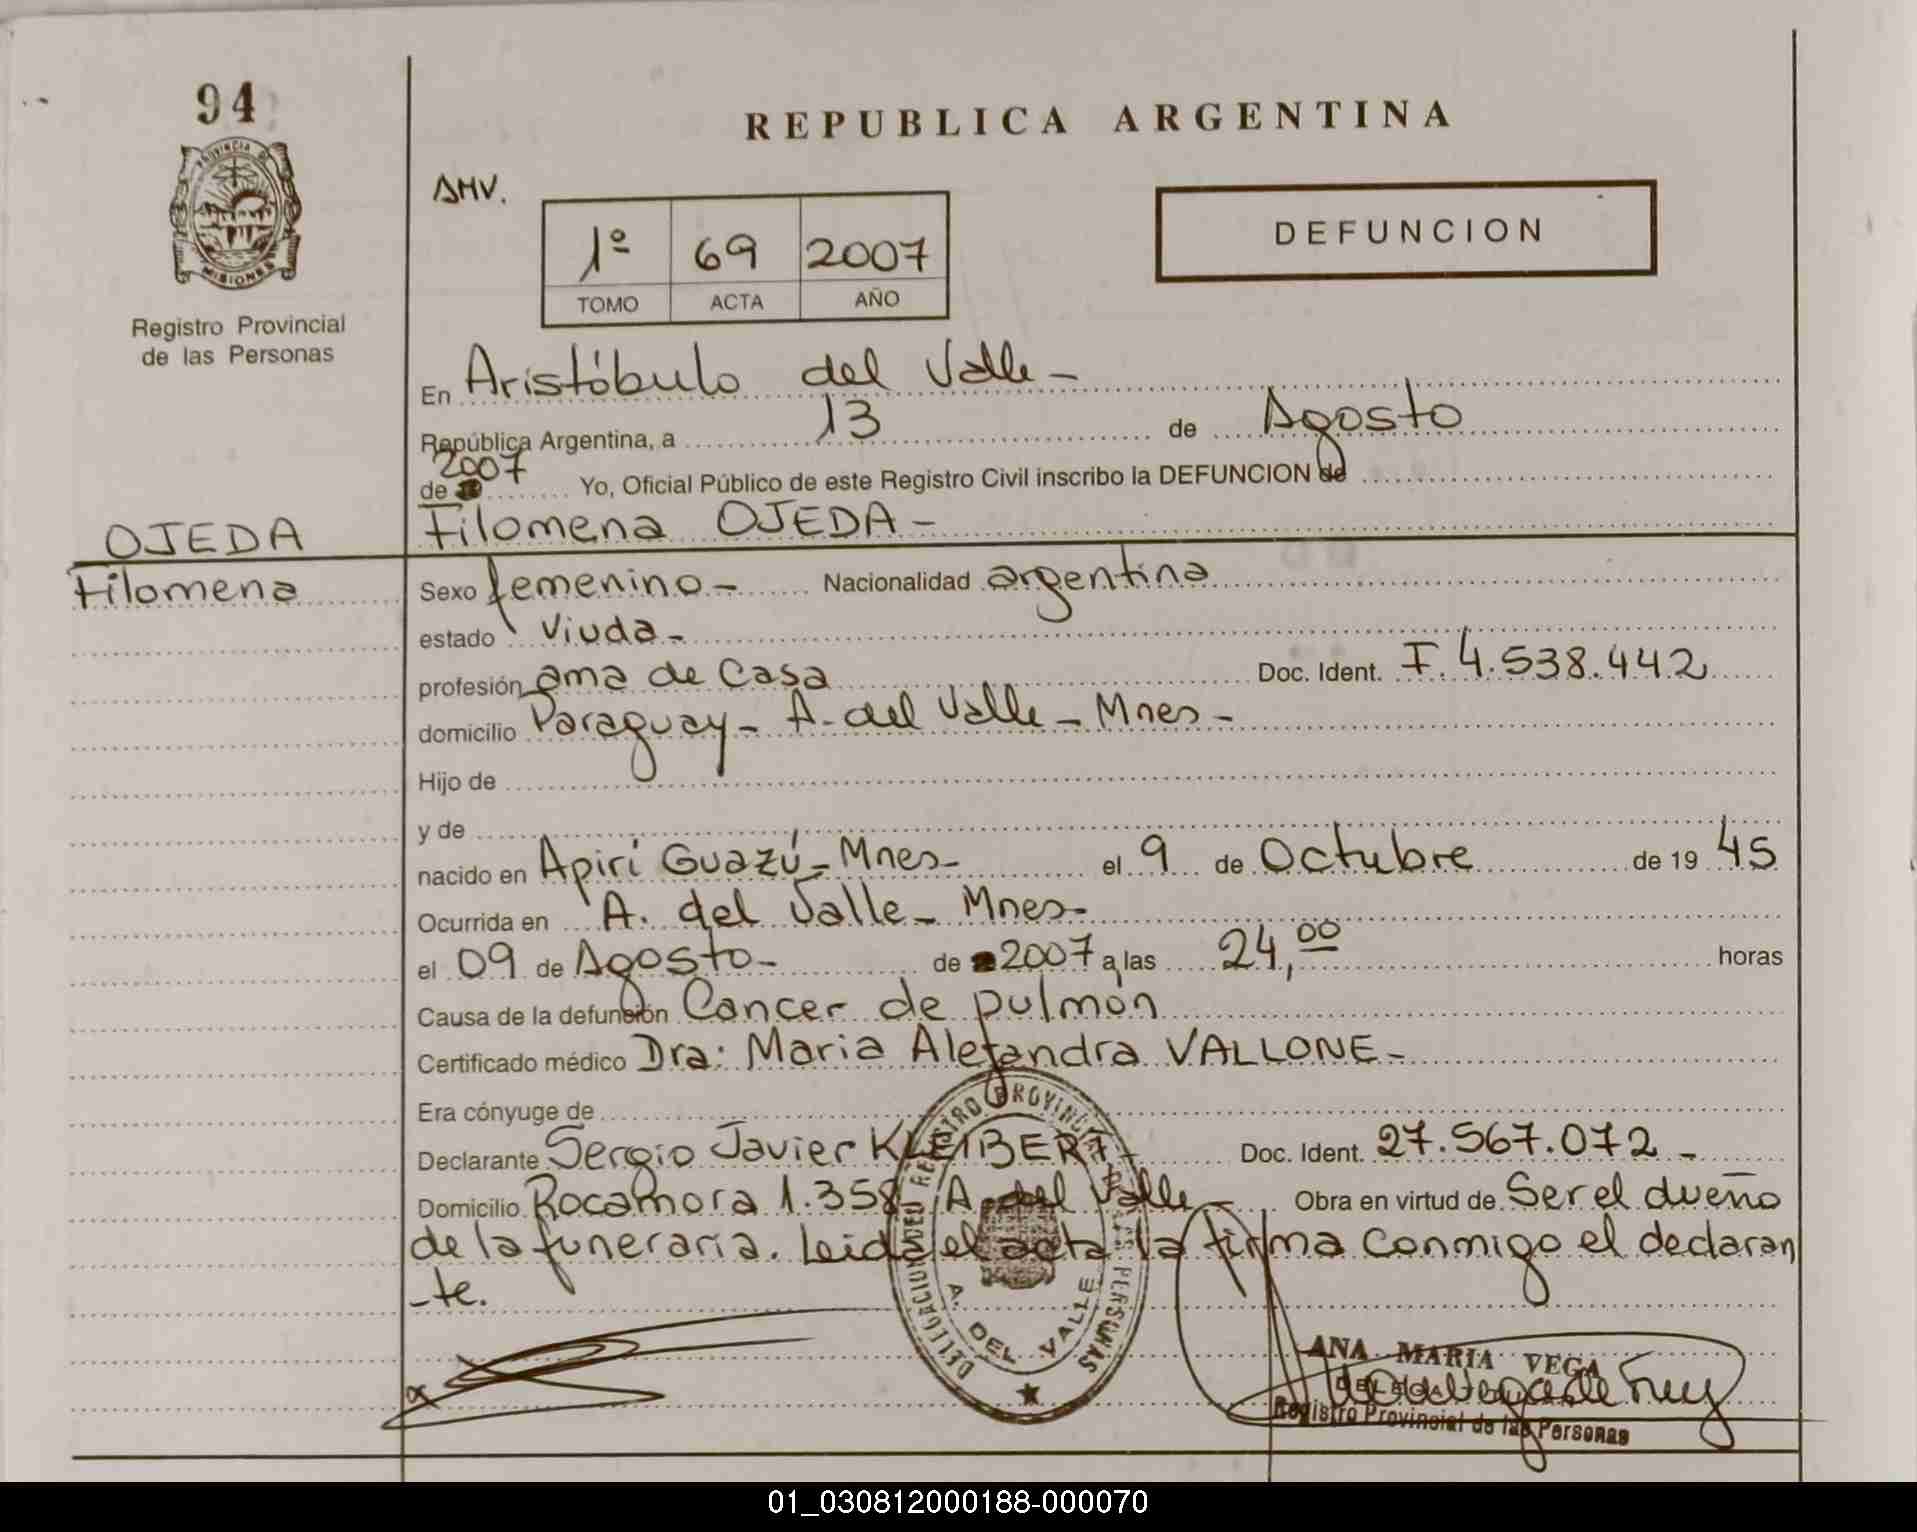 94
PROVINCIA DE
MISIONES
Registro Provincial
de las Personas
REPUBLICA ARGENTINA
AMV.
1º 69 2007
TOMO ACTA AÑO
DEFUNCION
En Aristóbulo del Valle -
República Argentina, a 13 de Agosto
de 2007 Yo, Oficial Público de este Registro Civil inscribo la DEFUNCION de
OJEDA Filomena OJEDA -
Filomena Sexo femenino - Nacionalidad argentina
estado Viuda -
profesión ama de Casa Doc. Ident. F. 4.538.442
domicilio Paraguay - A. del Valle - Mnes -
Hijo de
y de
nacido en Apiri Guazú - Mnes - el 9 de Octubre de 19 45
Ocurrida en A. del Valle - Mnes -
el 09 de Agosto - de 2007 a las 24,00 horas
Causa de la defunción Cancer de pulmón
Certificado médico Dra: Maria Alejandra VALLONE -
Era cónyuge de
Declarante Sergio Javier KLEIBERT - Doc. Ident. 27.567.072 -
Domicilio Rocamora 1.358 A. del Valle - Obra en virtud de Ser el dueño
de la funeraria. Leida el acta la firma conmigo el declaran
-te.
DELEGACION DEL REGISTRO PROVINCIAL DE LAS PERSONAS
A. DEL VALLE
ANA MARIA VEGA
DELEGADA
Registro Provincial de las Personas
01_030812000188-000070